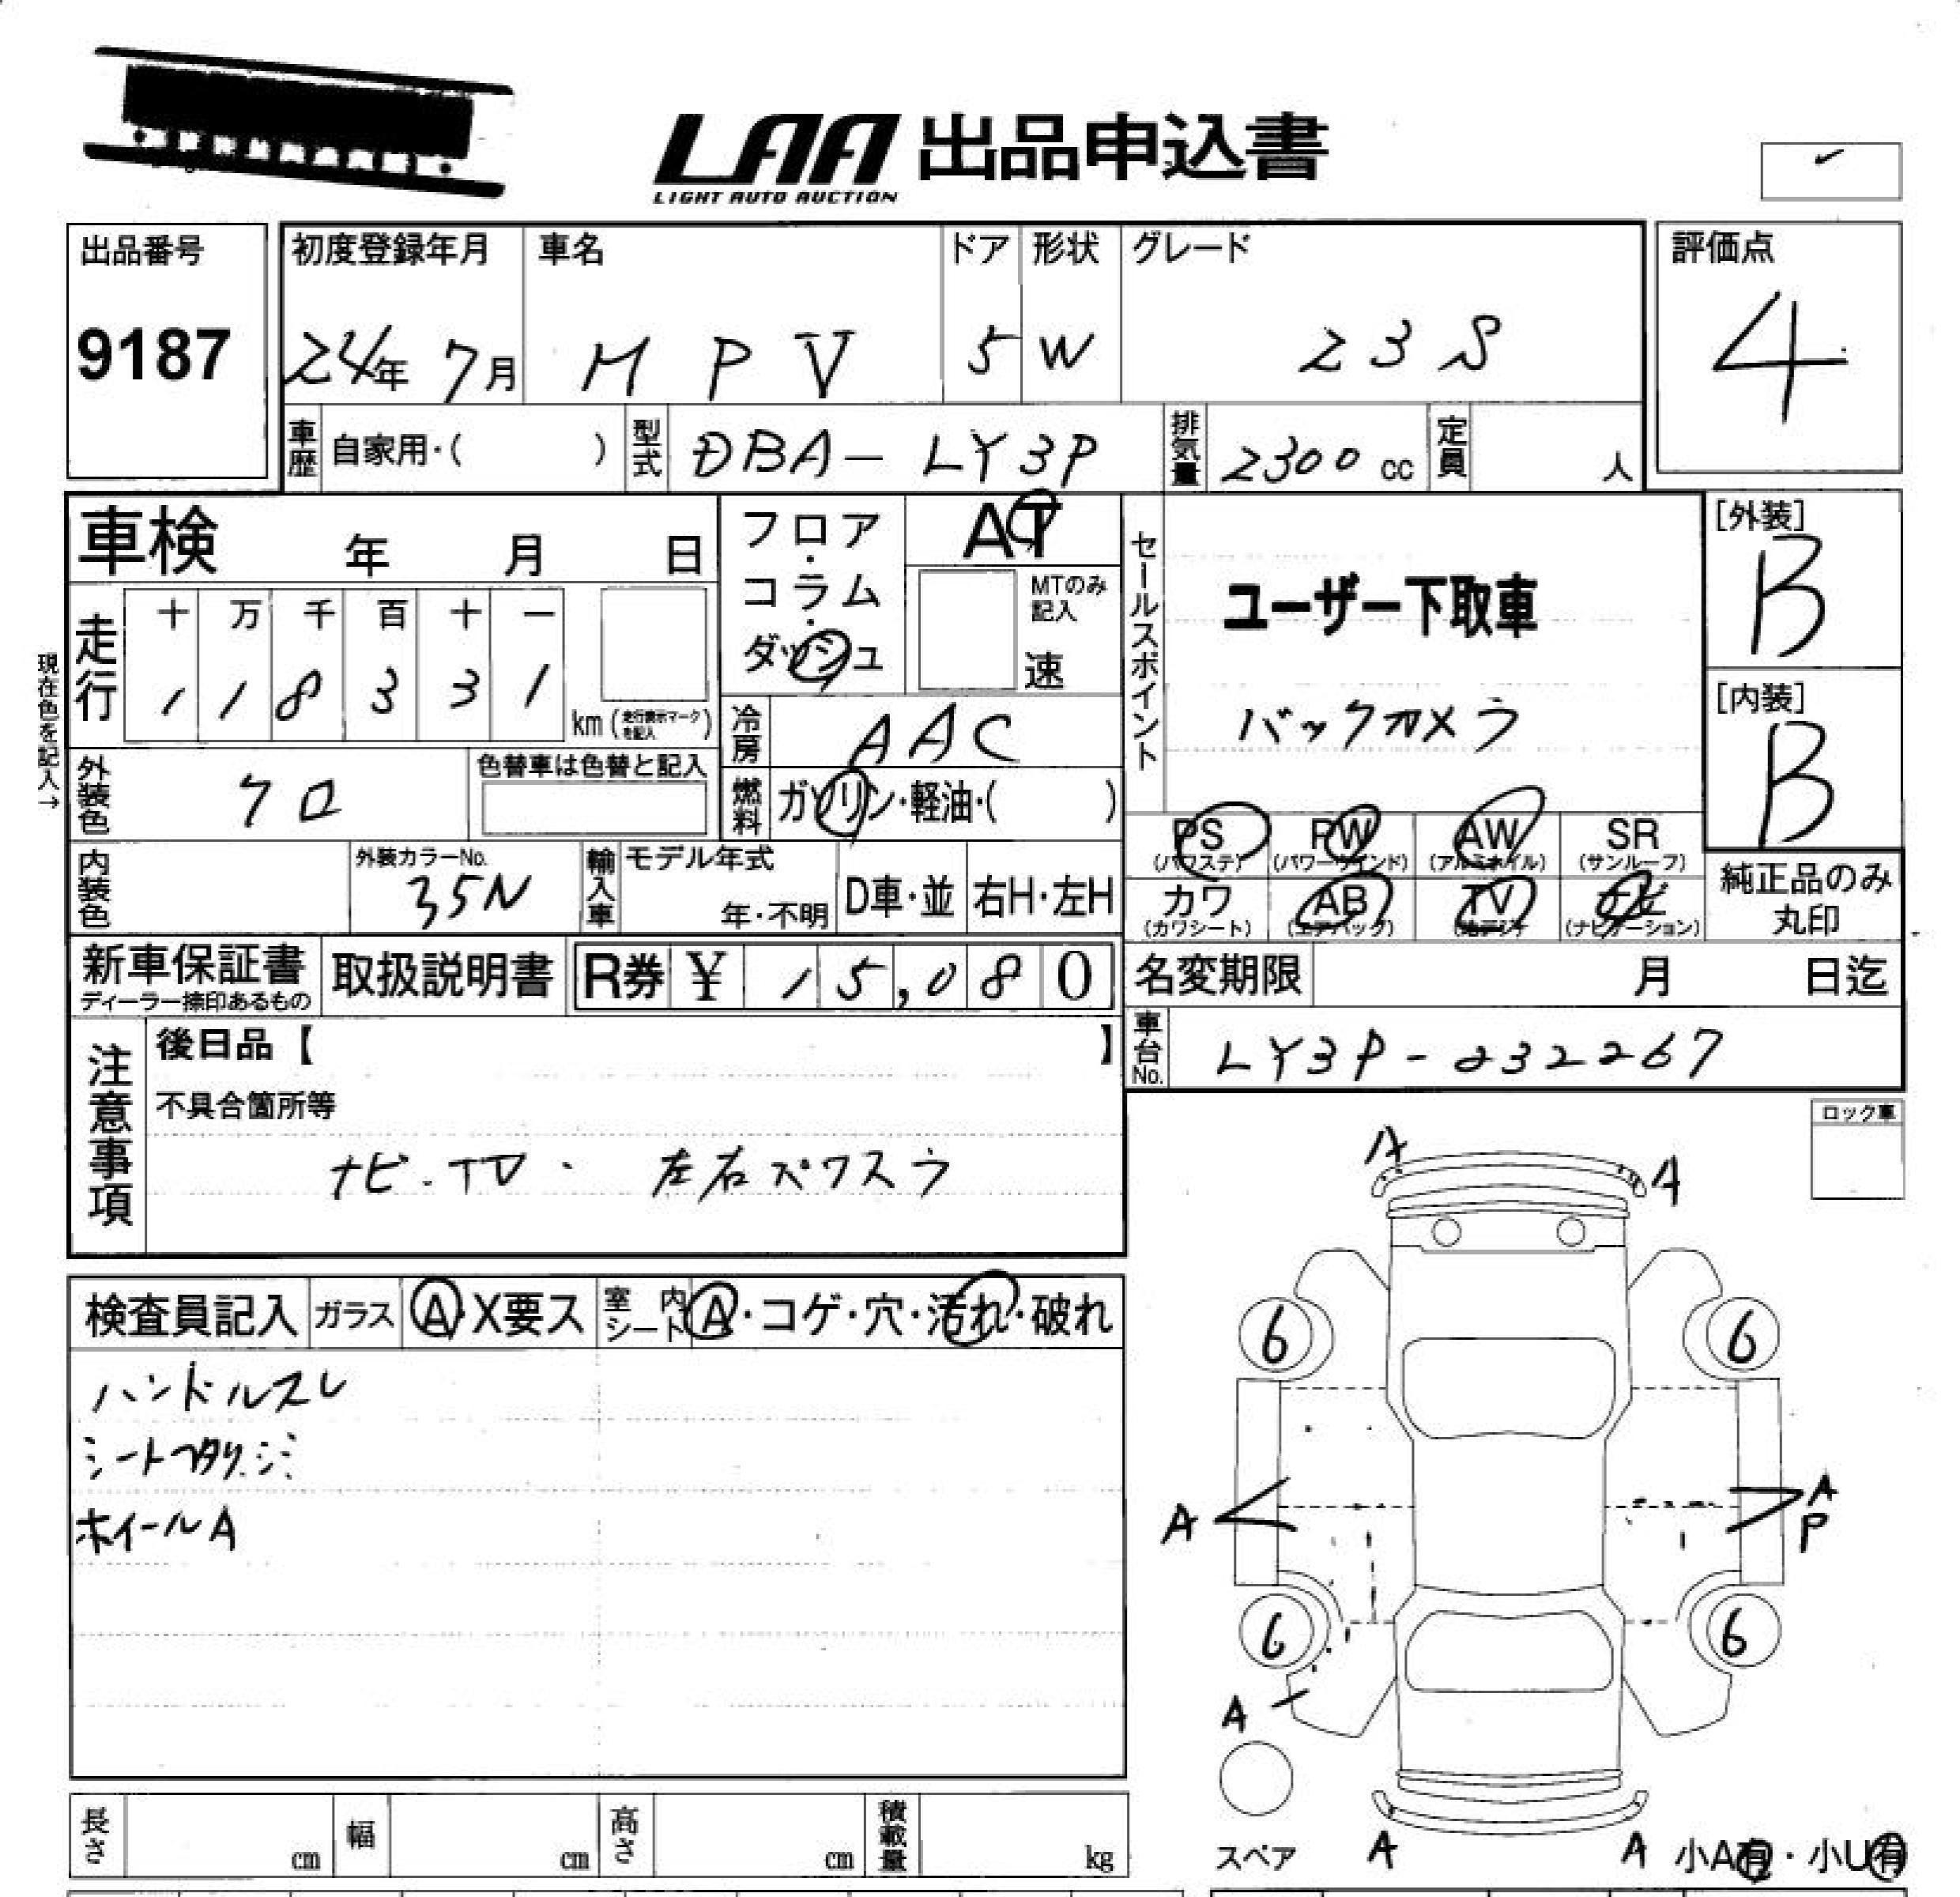 LAA 出品申込書
LIGHT AUTO AUCTION
出品番号
9187
初度登録年月
24年 7月
車名
MPV
ドア
5
形状
W
グレード
23S
評価点
4
車歴 自家用・( )
型式 DBA-LY3P
排気量 2300 cc
定員 人
車検 年 月 日
フロア・コラム・ダッシュ
AT
MTのみ記入
速
現在色を記入→
走行
十 万 千 百 十 一
1 1 8 3 3 1
km (走行表示マークを記入)
冷房 AAC
外装色 クロ
色替車は色替と記入
燃料 ガソリン・軽油・( )
内装色
外装カラーNo.
35N
輸入車
モデル年式
年・不明
D車・並
右H・左H
セールスポイント
ユーザー下取車
バックカメラ
[外装]
B
[内装]
B
PS (パワステ)
PW (パワーウインド)
AW (アルミホイル)
SR (サンルーフ)
カワ (カワシート)
AB (エアバック)
TV (地デジ)
ナビ (ナビゲーション)
純正品のみ丸印
新車保証書
ディーラー捺印あるもの
取扱説明書
R券 ¥ 15,080
名変期限 月 日迄
車台No. LY3P-232267
注意事項
後日品【 】
不具合箇所等
ナビ・TV・ 左右パワスラ
ロック車
検査員記入
ガラス A・X要ス
室内シート A・コゲ・穴・汚れ・破れ
ハンドルスレ
ホイールA
A
A
6
6
A
A
P
6
6
A
スペア
A
A
小A有・小U有
長さ cm
幅 cm
高さ cm
積載量 kg